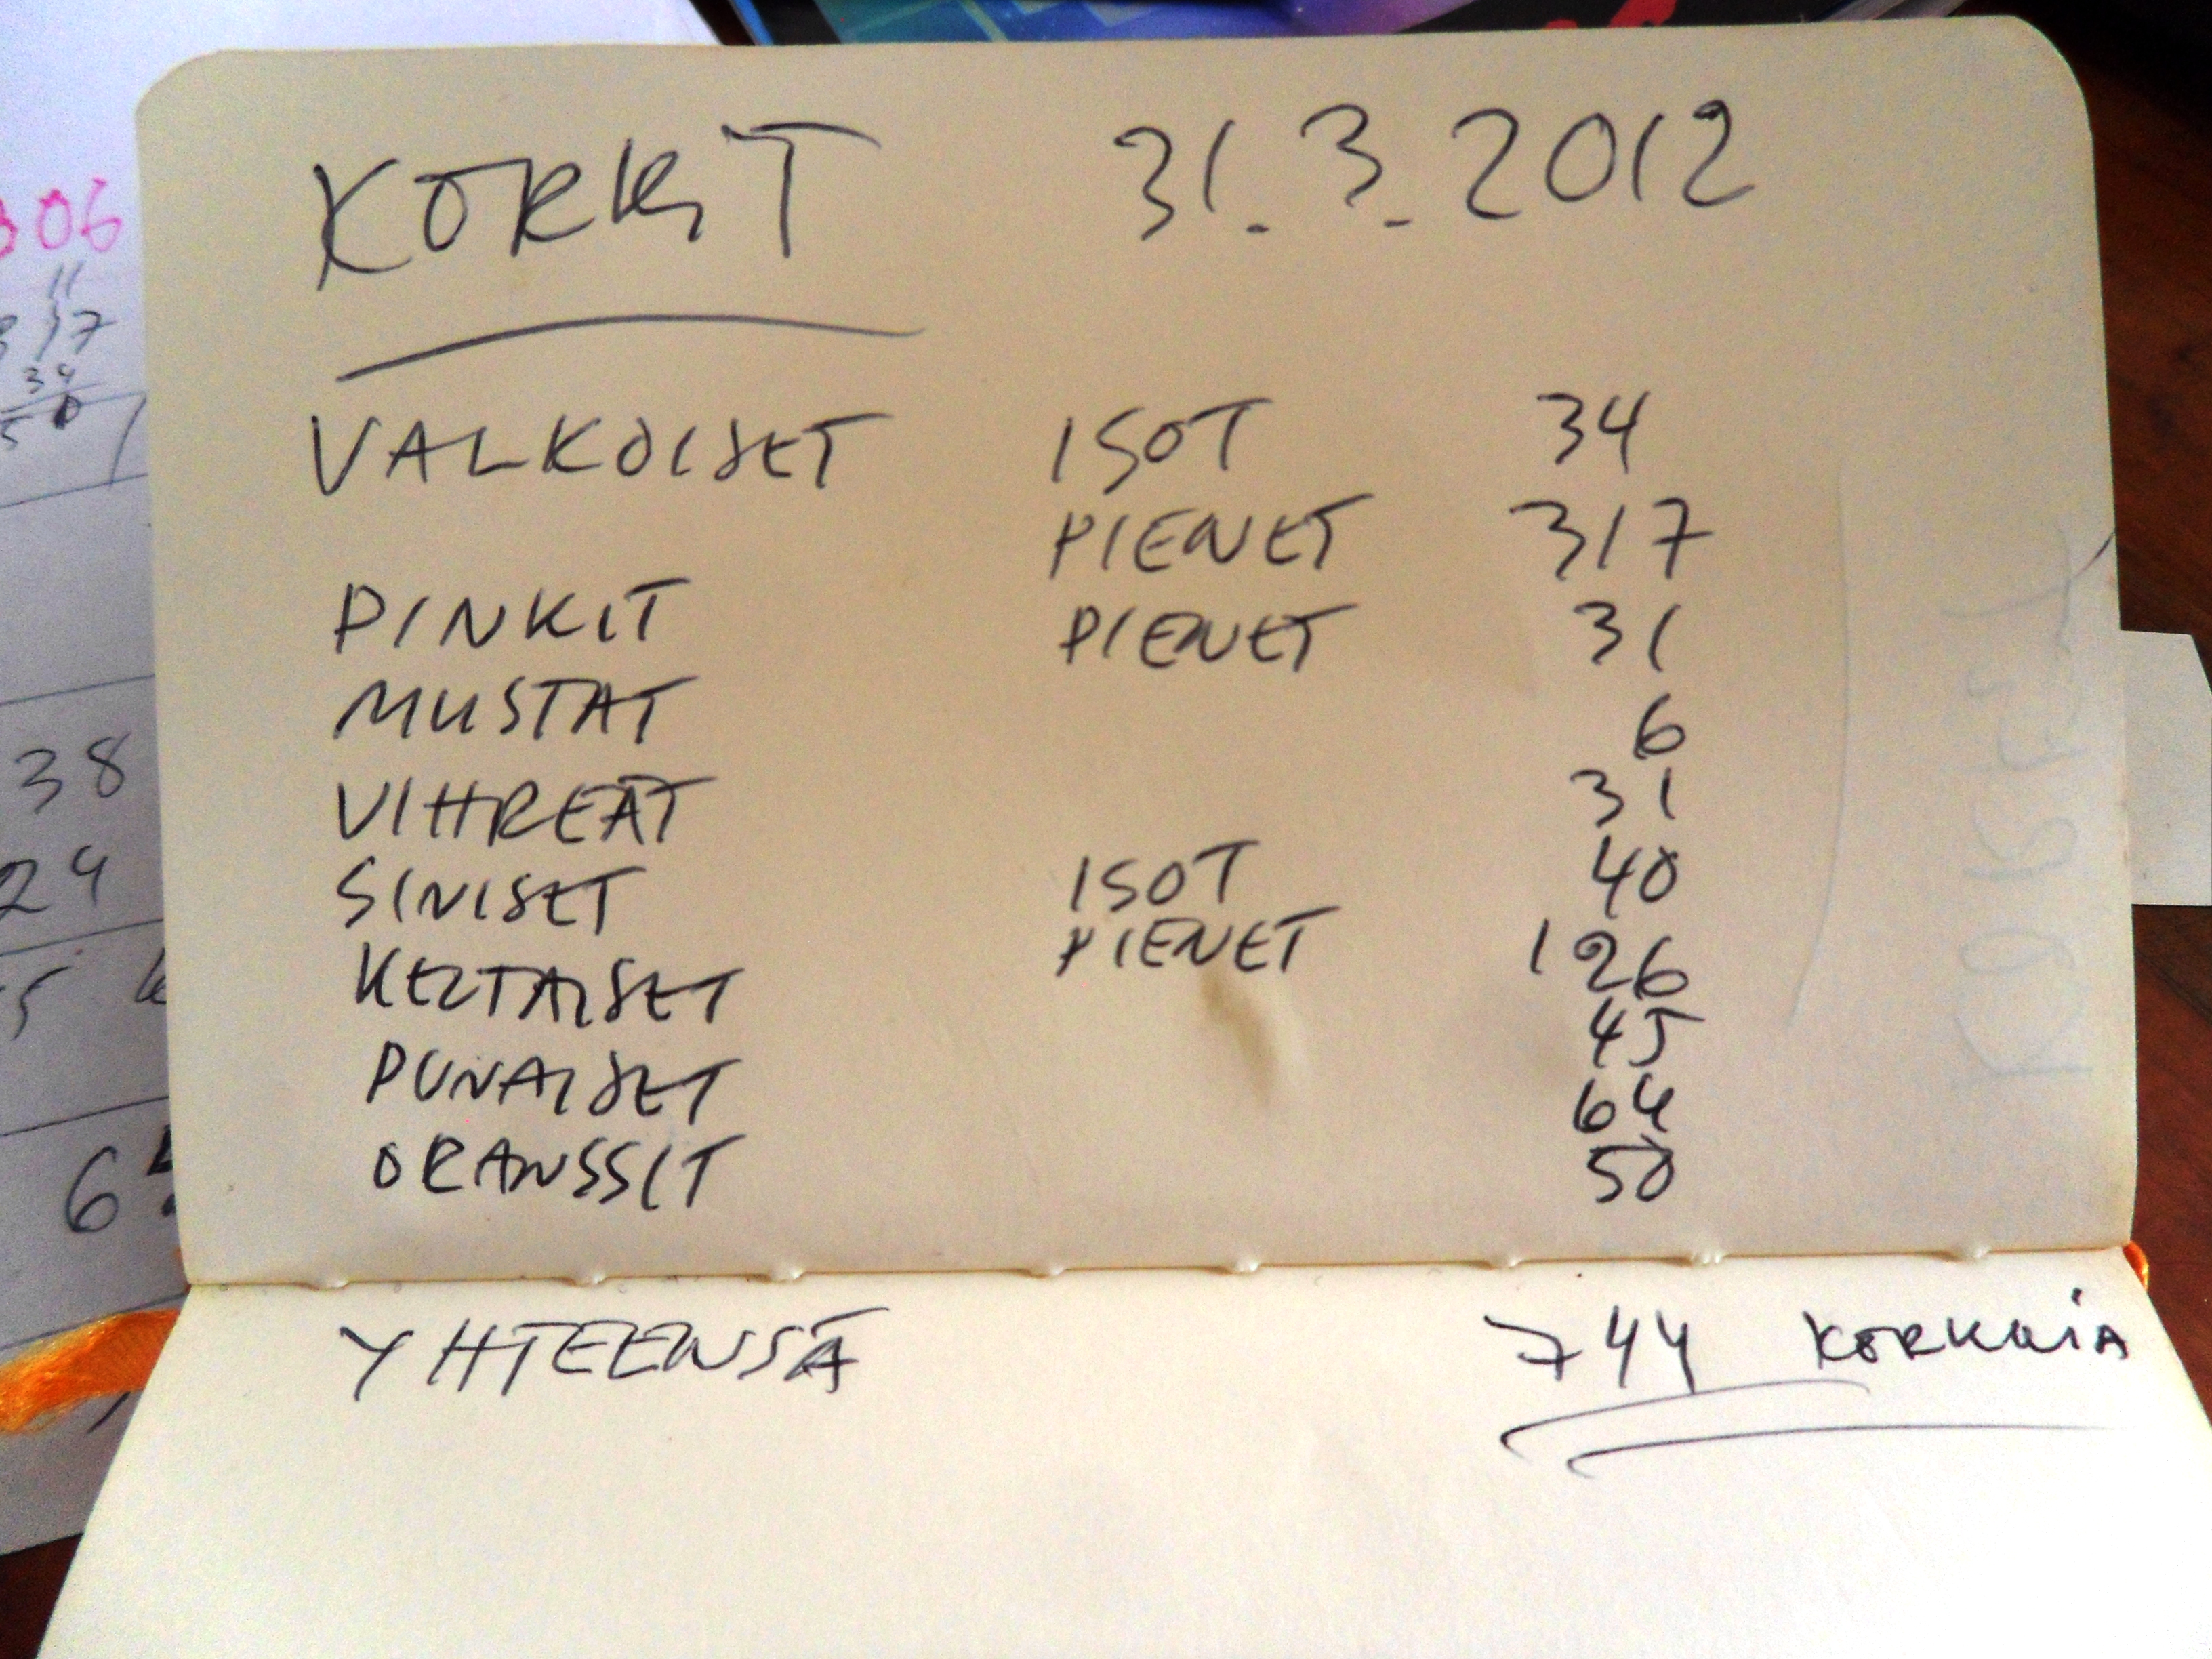 KORKIT 31.3.2012
VALKOISET ISOT 34
PIENET 317
PINKIT PIENET 31
MUSTAT 6
VIHREÄT 31
SINISET ISOT 40
PIENET 126
KELTAISET 45
PUNAISET 64
ORANSSIT 50
YHTEENSÄ 744 KORKKIA
306
317
34
38
24